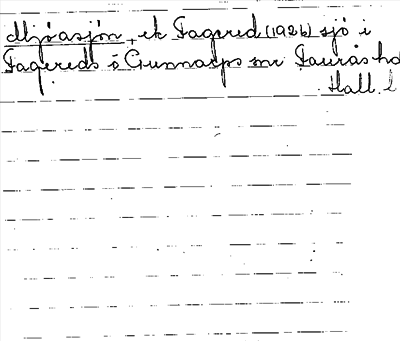 Mjöasjön, ek Fagered (1926) sjö i
Fagereds o Gunnarps snr Faurås hd
Hall. l